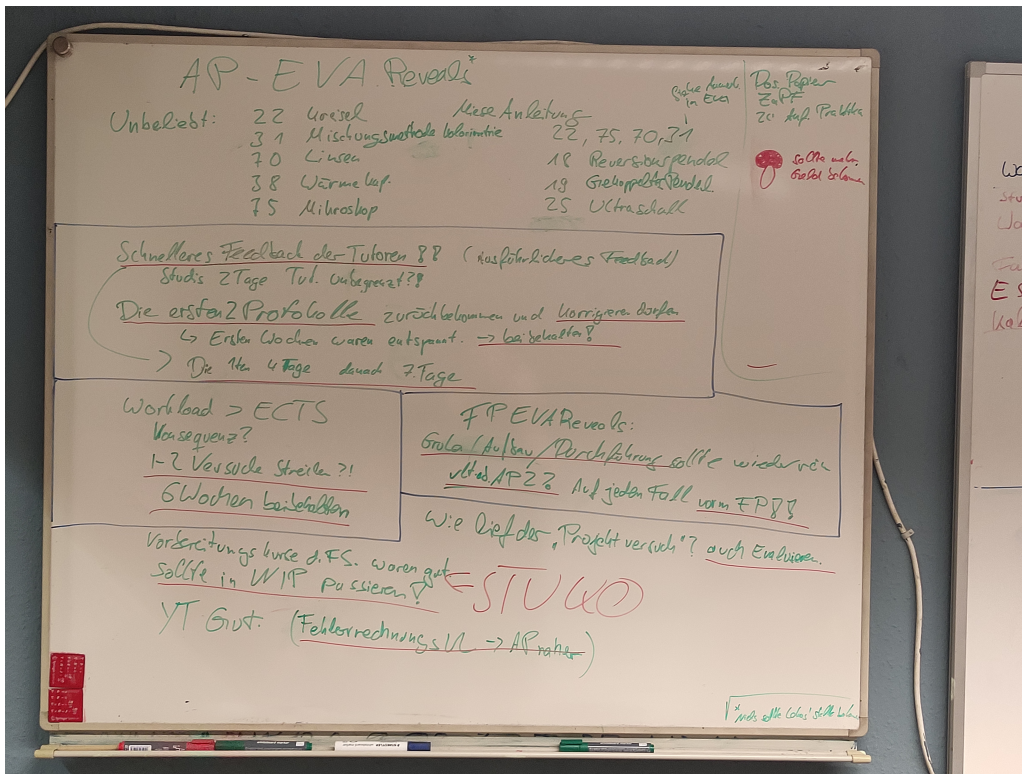 AP-EVA Reveals*
Unbeliebt:
22 Kreisel
31 Mischungsmethode Kolorimetrie
70 Linsen
38 Wärmekap.
75 Mikroskop
Miese Anleitung
in Eva
22, 75, 70, 31
18 Reversionspendel
19 Gekoppelte Pendel
25 Ultraschall
Das Papier
ZaPF
zu Auf. Praktika
sollte mehr
Geld bekommen
Schnelleres Feedback der Tutoren !! (Ausführlicheres Feedback)
Studis 2 Tage Tut. unbegrenzt?!
Die ersten 2 Protokolle zurückbekommen und korrigieren dürfen
↳ Ersten Wochen waren entspannt. → beibehalten!
Die 1ten 4 Tage danach 7. Tage
Workload > ECTS
Konsequenz?
1-2 Versuche Streichen?!
6 Wochen beibehalten
FP EVA Reveals:
/Aufbau/Durchführung sollte wieder rein
AP2? Auf jeden Fall vorm FP!!
Wie lief der "Projektversuch"? auch Evaluieren.
Vorbereitungskurse d. FS. waren gut
sollte in WIP passieren!
← STUKO
YT Gut. (Fehlerrechnungs VL → AP näher)